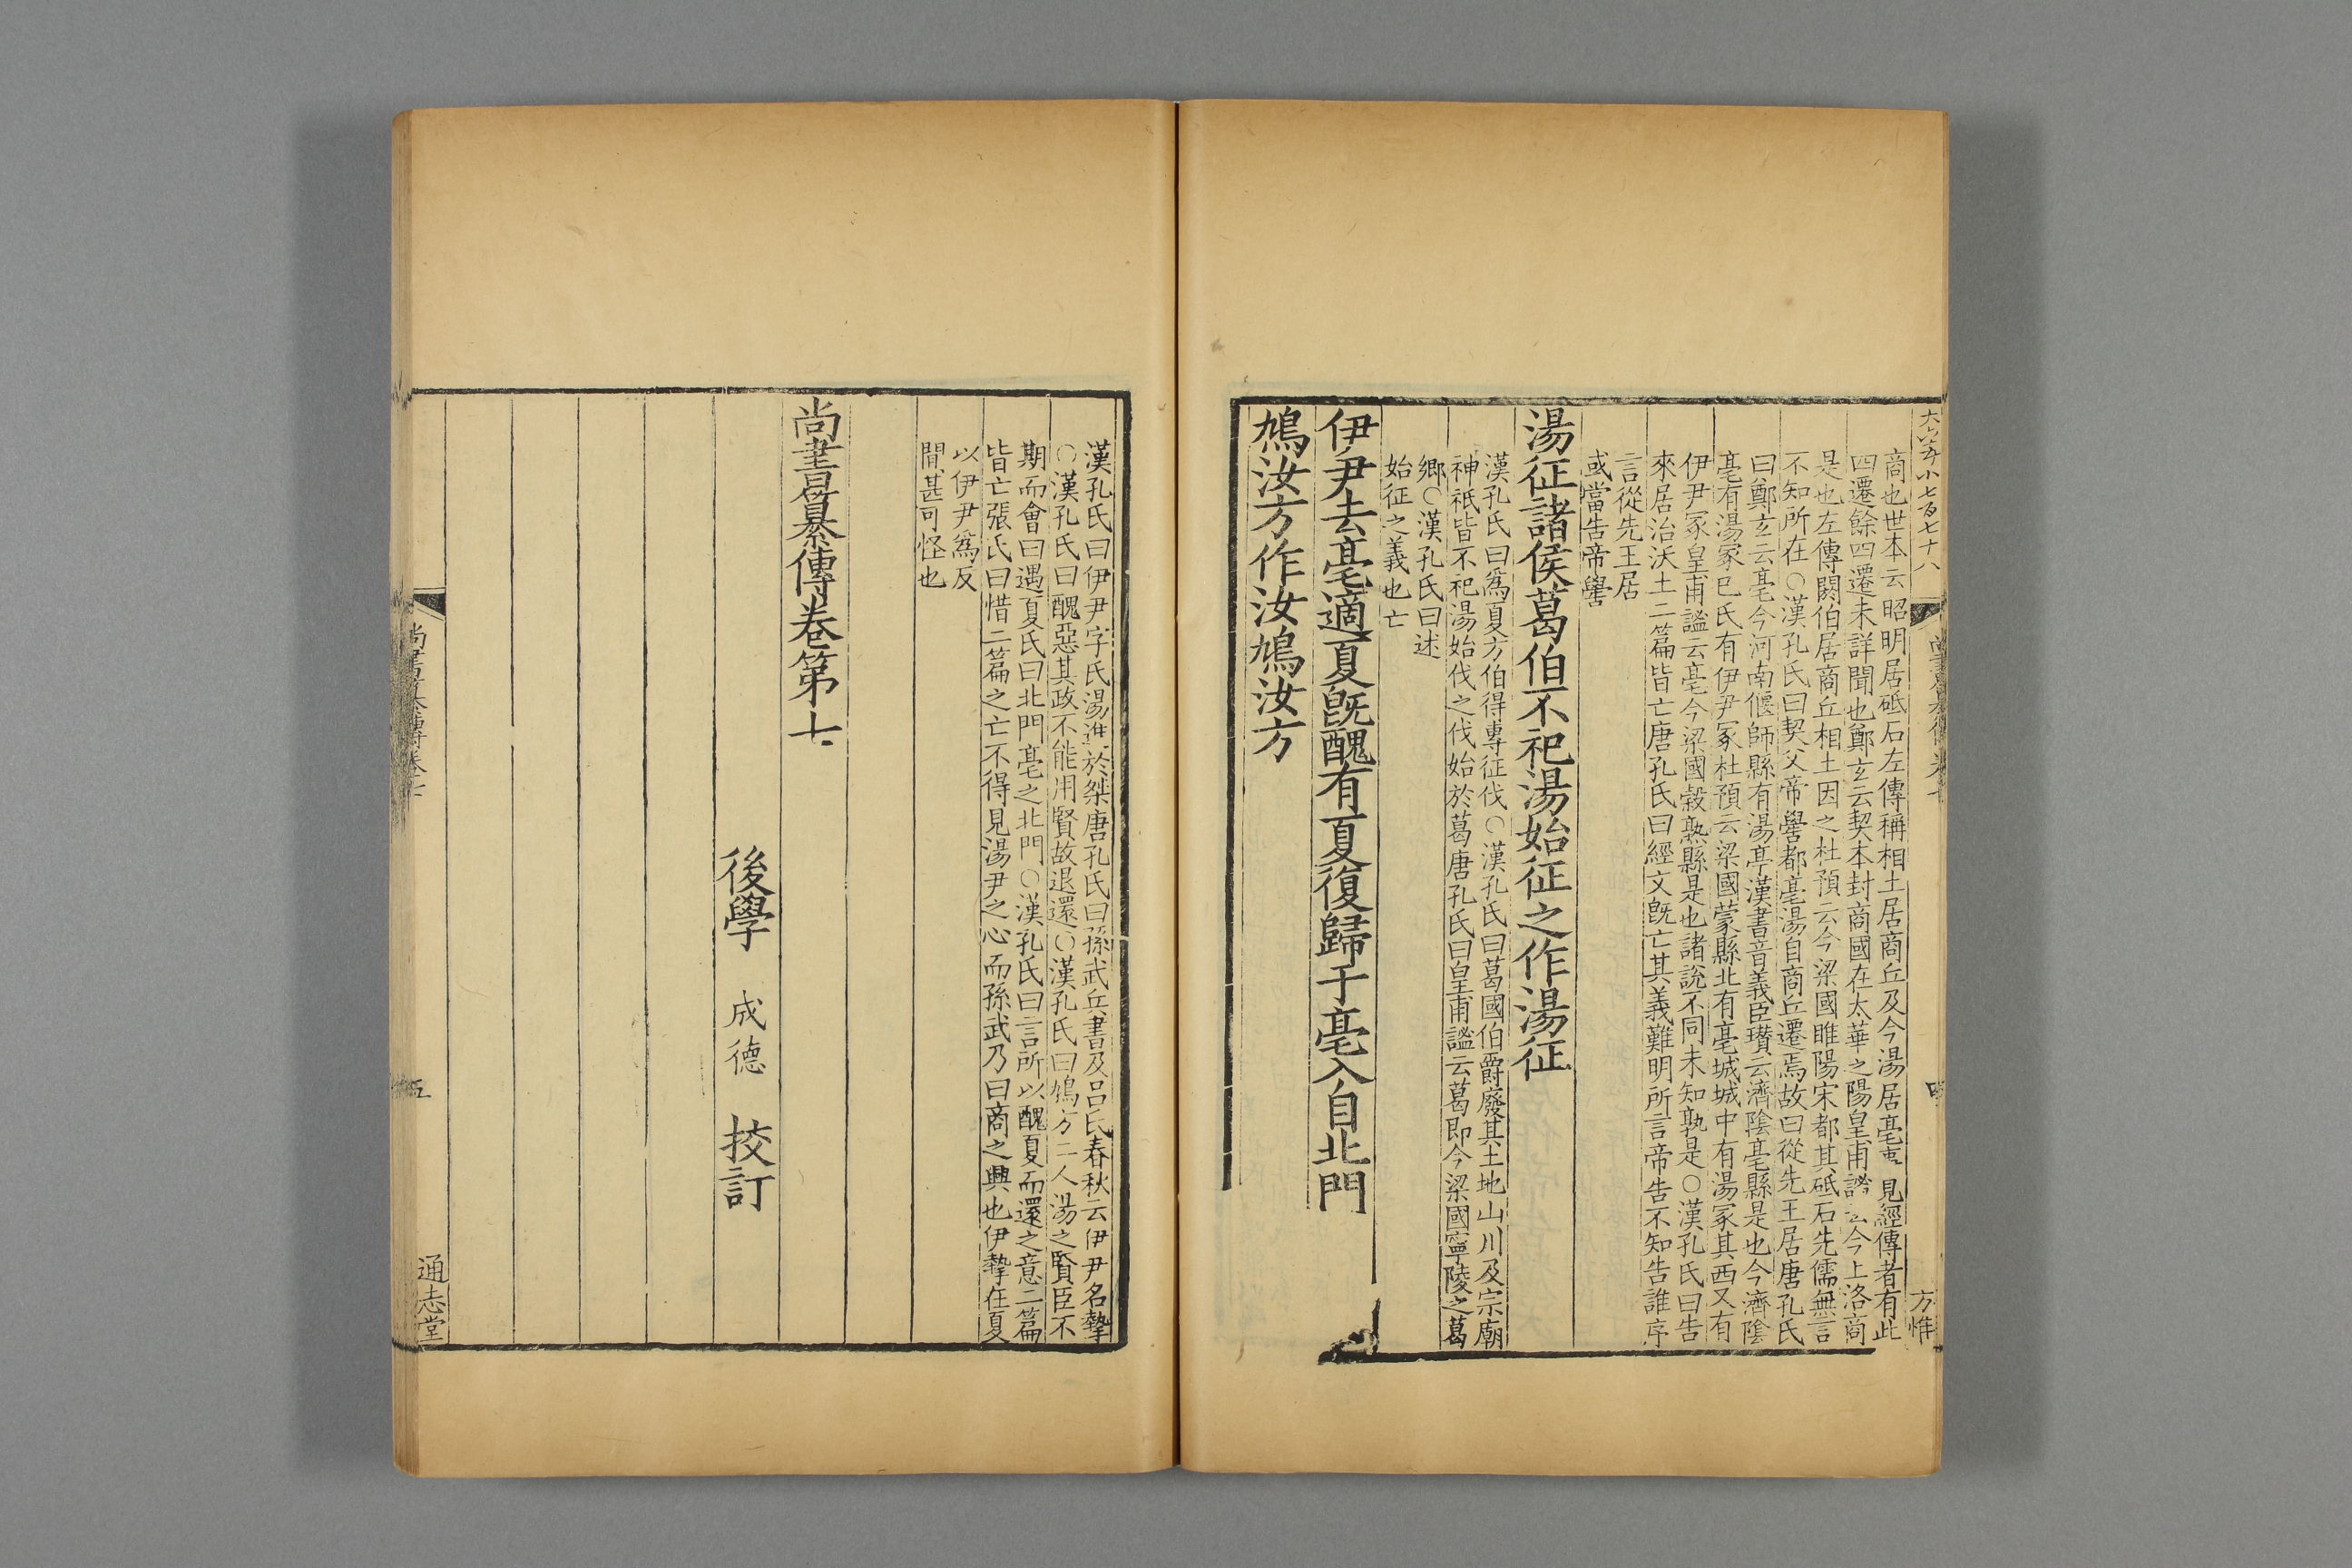 商也世本云昭明居砥石左傳稱相土居商丘及今湯居亳事見經傳者有此
四遷餘四遷未詳聞也鄭玄云契本封商國在太華之陽皇甫謐云今上洛商
是也左傳閼伯居商丘相土因之杜預云今梁國睢陽宋都其砥石先儒無言
不知所在○漢孔氏曰契父帝嚳都亳湯自商丘遷焉故曰從先王居唐孔氏
曰鄭玄云亳今河南偃師縣有湯亭漢書音義臣瓚云濟陰亳縣是也今濟陰
亳有湯冢巳氏有伊尹冢杜預云梁國蒙縣北有亳城城中有湯冢其西又有
伊尹冢皇甫謐云亳今梁國穀熟縣是也諸說不同未知孰是○漢孔氏曰告
來居治沃土二篇皆亡唐孔氏曰經文旣亡其義難明所言帝告不知告誰序
言從先王居
或當告帝嚳
湯征諸侯葛伯不祀湯始征之作湯征
漢孔氏曰爲夏方伯得專征伐○漢孔氏曰葛國伯爵廢其土地山川及宗廟
神祇皆不祀湯始伐之伐始於葛唐孔氏曰皇甫謐云葛即今梁國寧陵之葛
鄉○漢孔氏曰述
始征之義也亡
伊尹去亳適夏旣醜有夏復歸于亳入自北門
鳩汝方作汝鳩汝方
漢孔氏曰伊尹字氏湯進於桀唐孔氏曰孫武兵書及呂氏春秋云伊尹名摯
○漢孔氏曰醜惡其政不能用賢故退還○漢孔氏曰鳩方二人湯之賢臣不
期而會曰遇夏氏曰北門亳之北門○漢孔氏曰言所以醜夏而還之意二篇
皆亡張氏曰惜二篇之亡不得見湯尹之心而孫武乃曰商之興也伊摯在夏
以伊尹爲反
間甚可怪也
尚書纂傳卷第七
後學 成德 挍訂
尚書纂傳卷七
五
通志堂